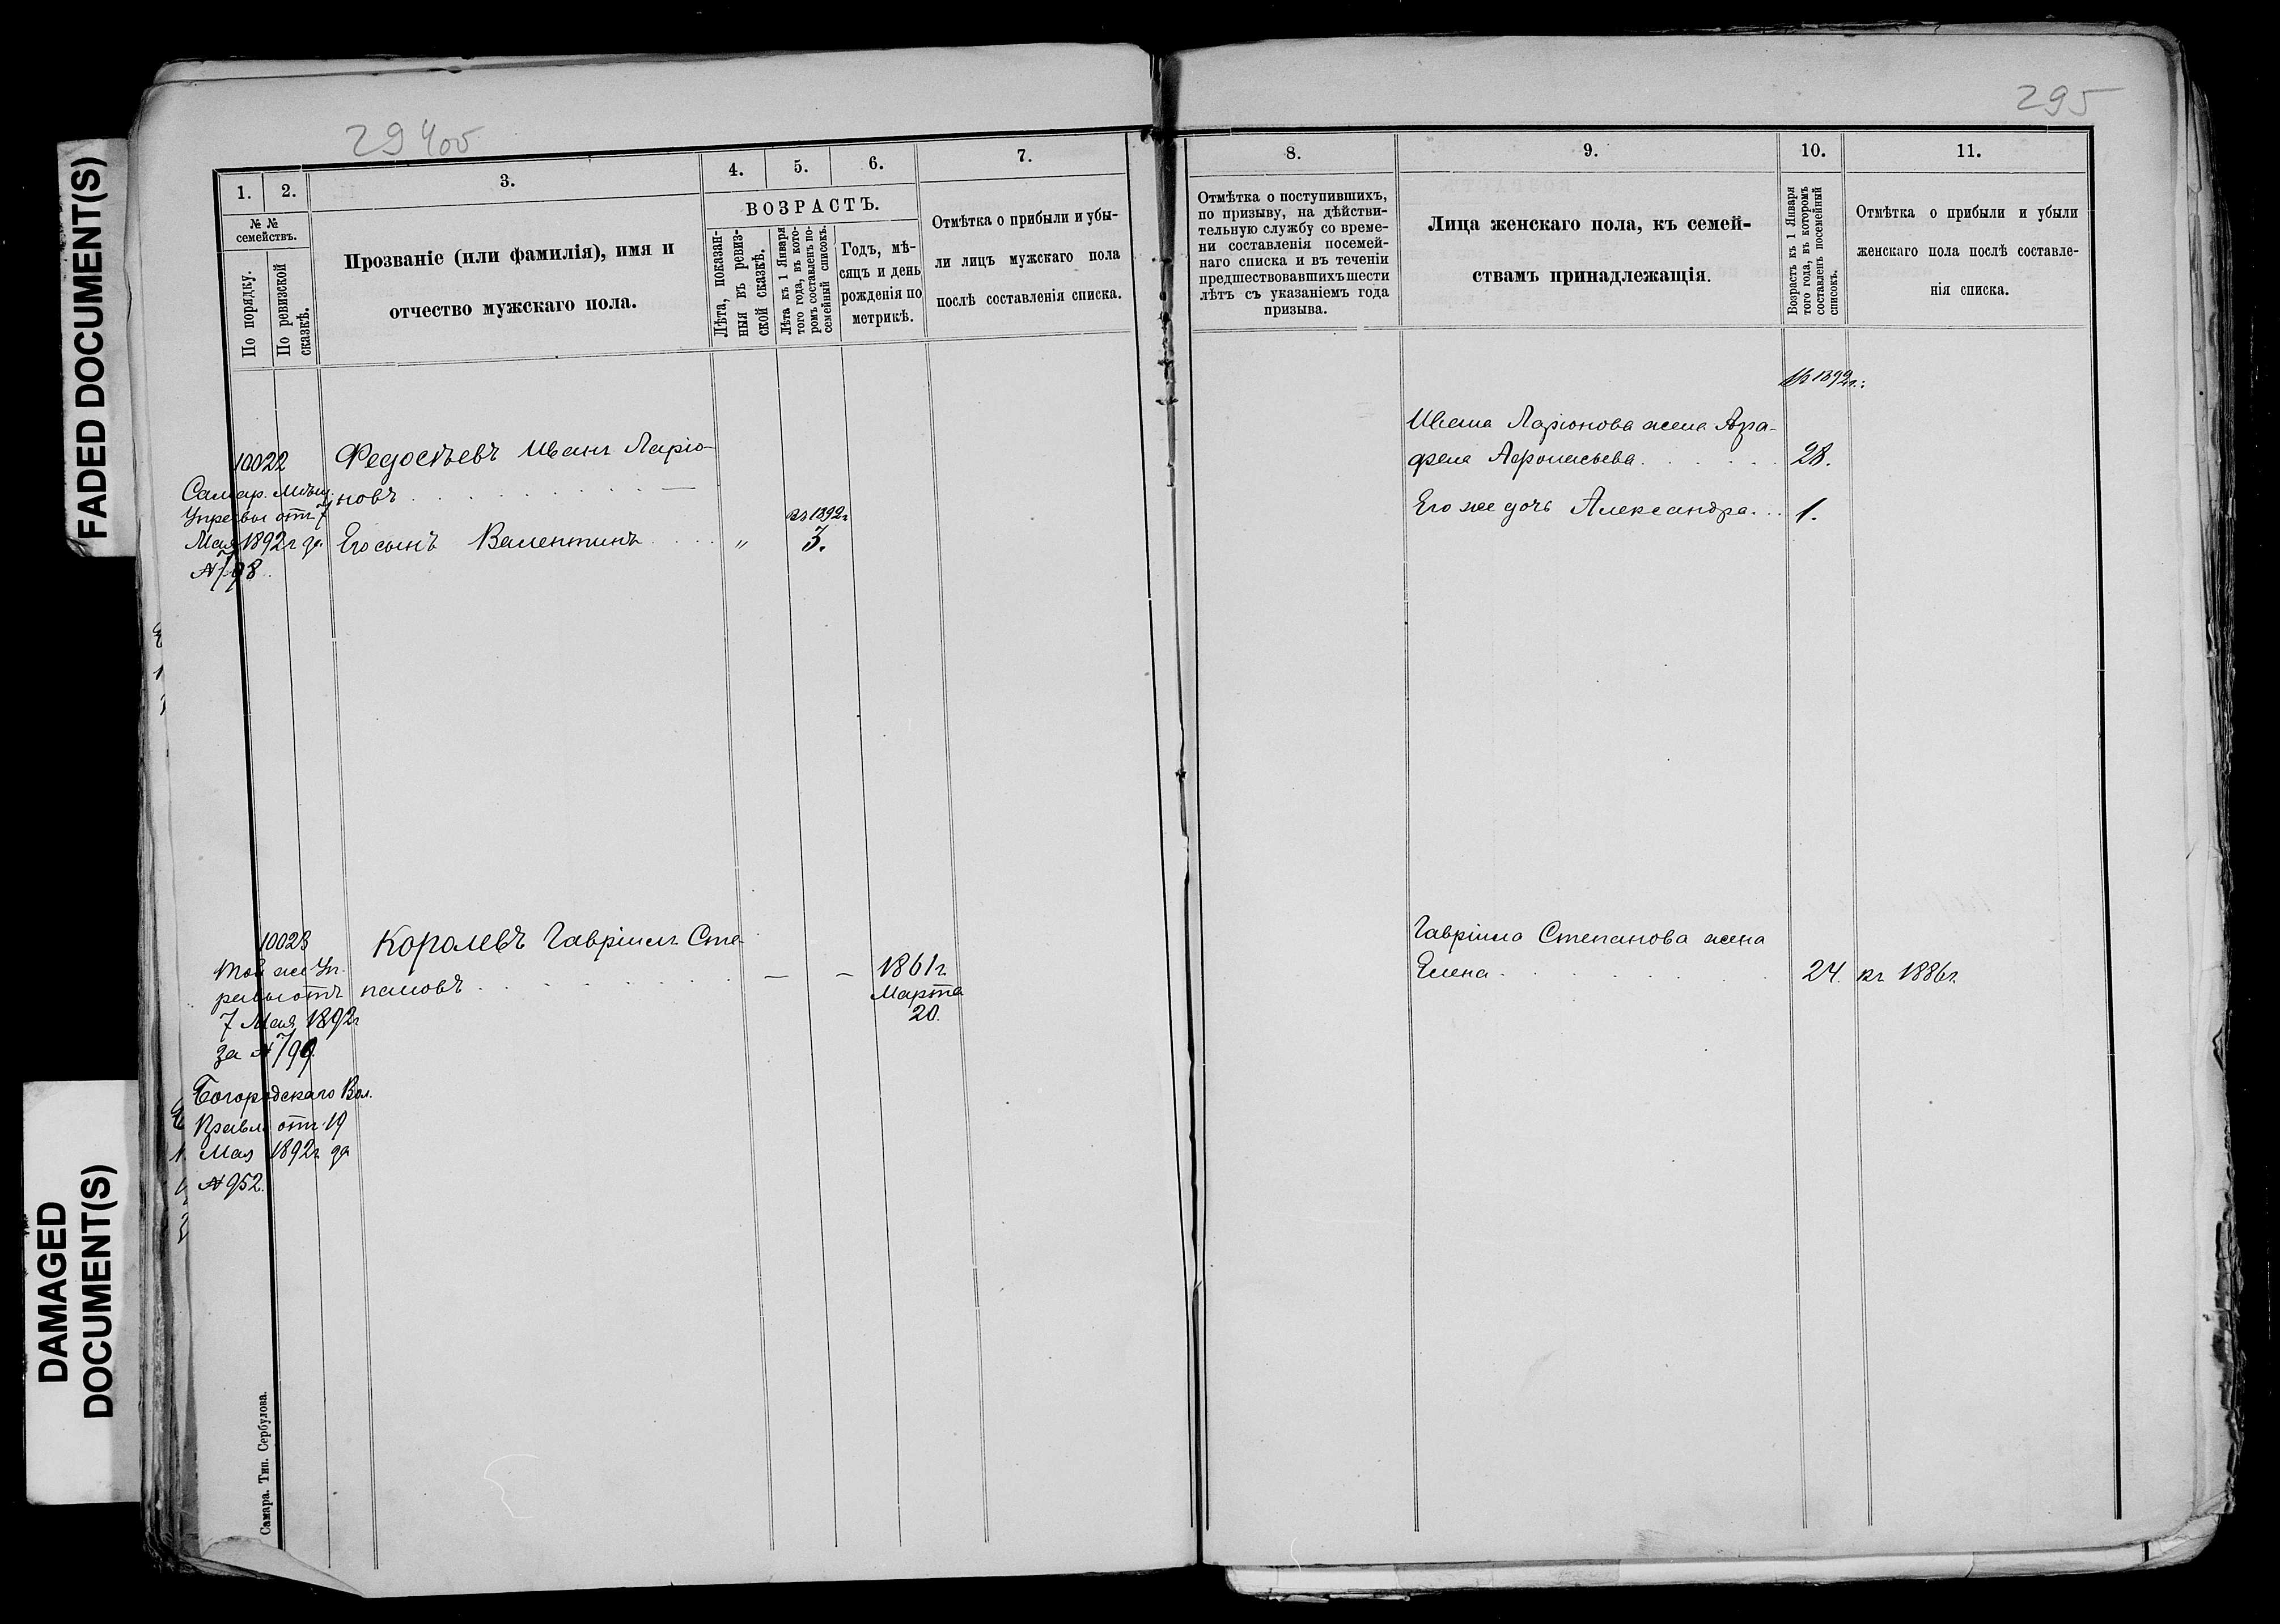 FADED DOCUMENT(S)
DAMAGED
DOCUMENT(S)
29400
1.
2.
3.
4.
5.
6.
7.
№ №
семействъ.
По порядку.
По ревизской
сказкѣ.
Прозваніе (или фамилія), имя и
отчество мужскаго пола.
ВОЗРАСТЪ.
Лѣта, показан-
ныя въ ревиз-
ской сказкѣ.
Лѣта къ 1 Января
того года, въ кото-
ромъ составленъ по-
семейный списокъ.
Годъ, мѣ-
сяцъ и день
рожденія по
метрикѣ.
Отмѣтка о прибыли и убы-
ли лицъ мужскаго пола
послѣ составленія списка.
10022
Самар. Мѣщ.
Управы отъ 7
Мая 1892г за
№798.
Федосѣевъ Иванъ Ларіо-
новъ
Его сынъ Валентинъ
"
къ 1892г
3.
10023
Той же Уп-
равы отъ
7 Мая 1892г
за №799.
Королевъ Гавріилъ Сте-
пановъ
— —
1861г
Марта
20.
Богородскаго Вол.
Правл. отъ 19
Мая 1892г за
№ 952.
Самара. Тип. Сербулова.
295
8.
9.
10.
11.
Отмѣтка о поступившихъ,
по призыву, на дѣйстви-
тельную службу со време-
ни составленія посемей-
наго списка и въ теченіи
предшествовавшихъ шести
лѣтъ съ указаніемъ года
призыва.
Лица женскаго пола, къ семей-
ствамъ принадлежащія.
Возрастъ къ 1 Января
того года, въ которомъ
составленъ посемейный
списокъ.
Отмѣтка о прибыли и убыли
женскаго пола послѣ составле-
нія списка.
къ 1892г.:
Ивана Ларіонова жена Агра-
фена Афонасьева 28.
Его же дочь Александра 1.
Гавріила Степанова жена
Елена 24. къ 1886г.